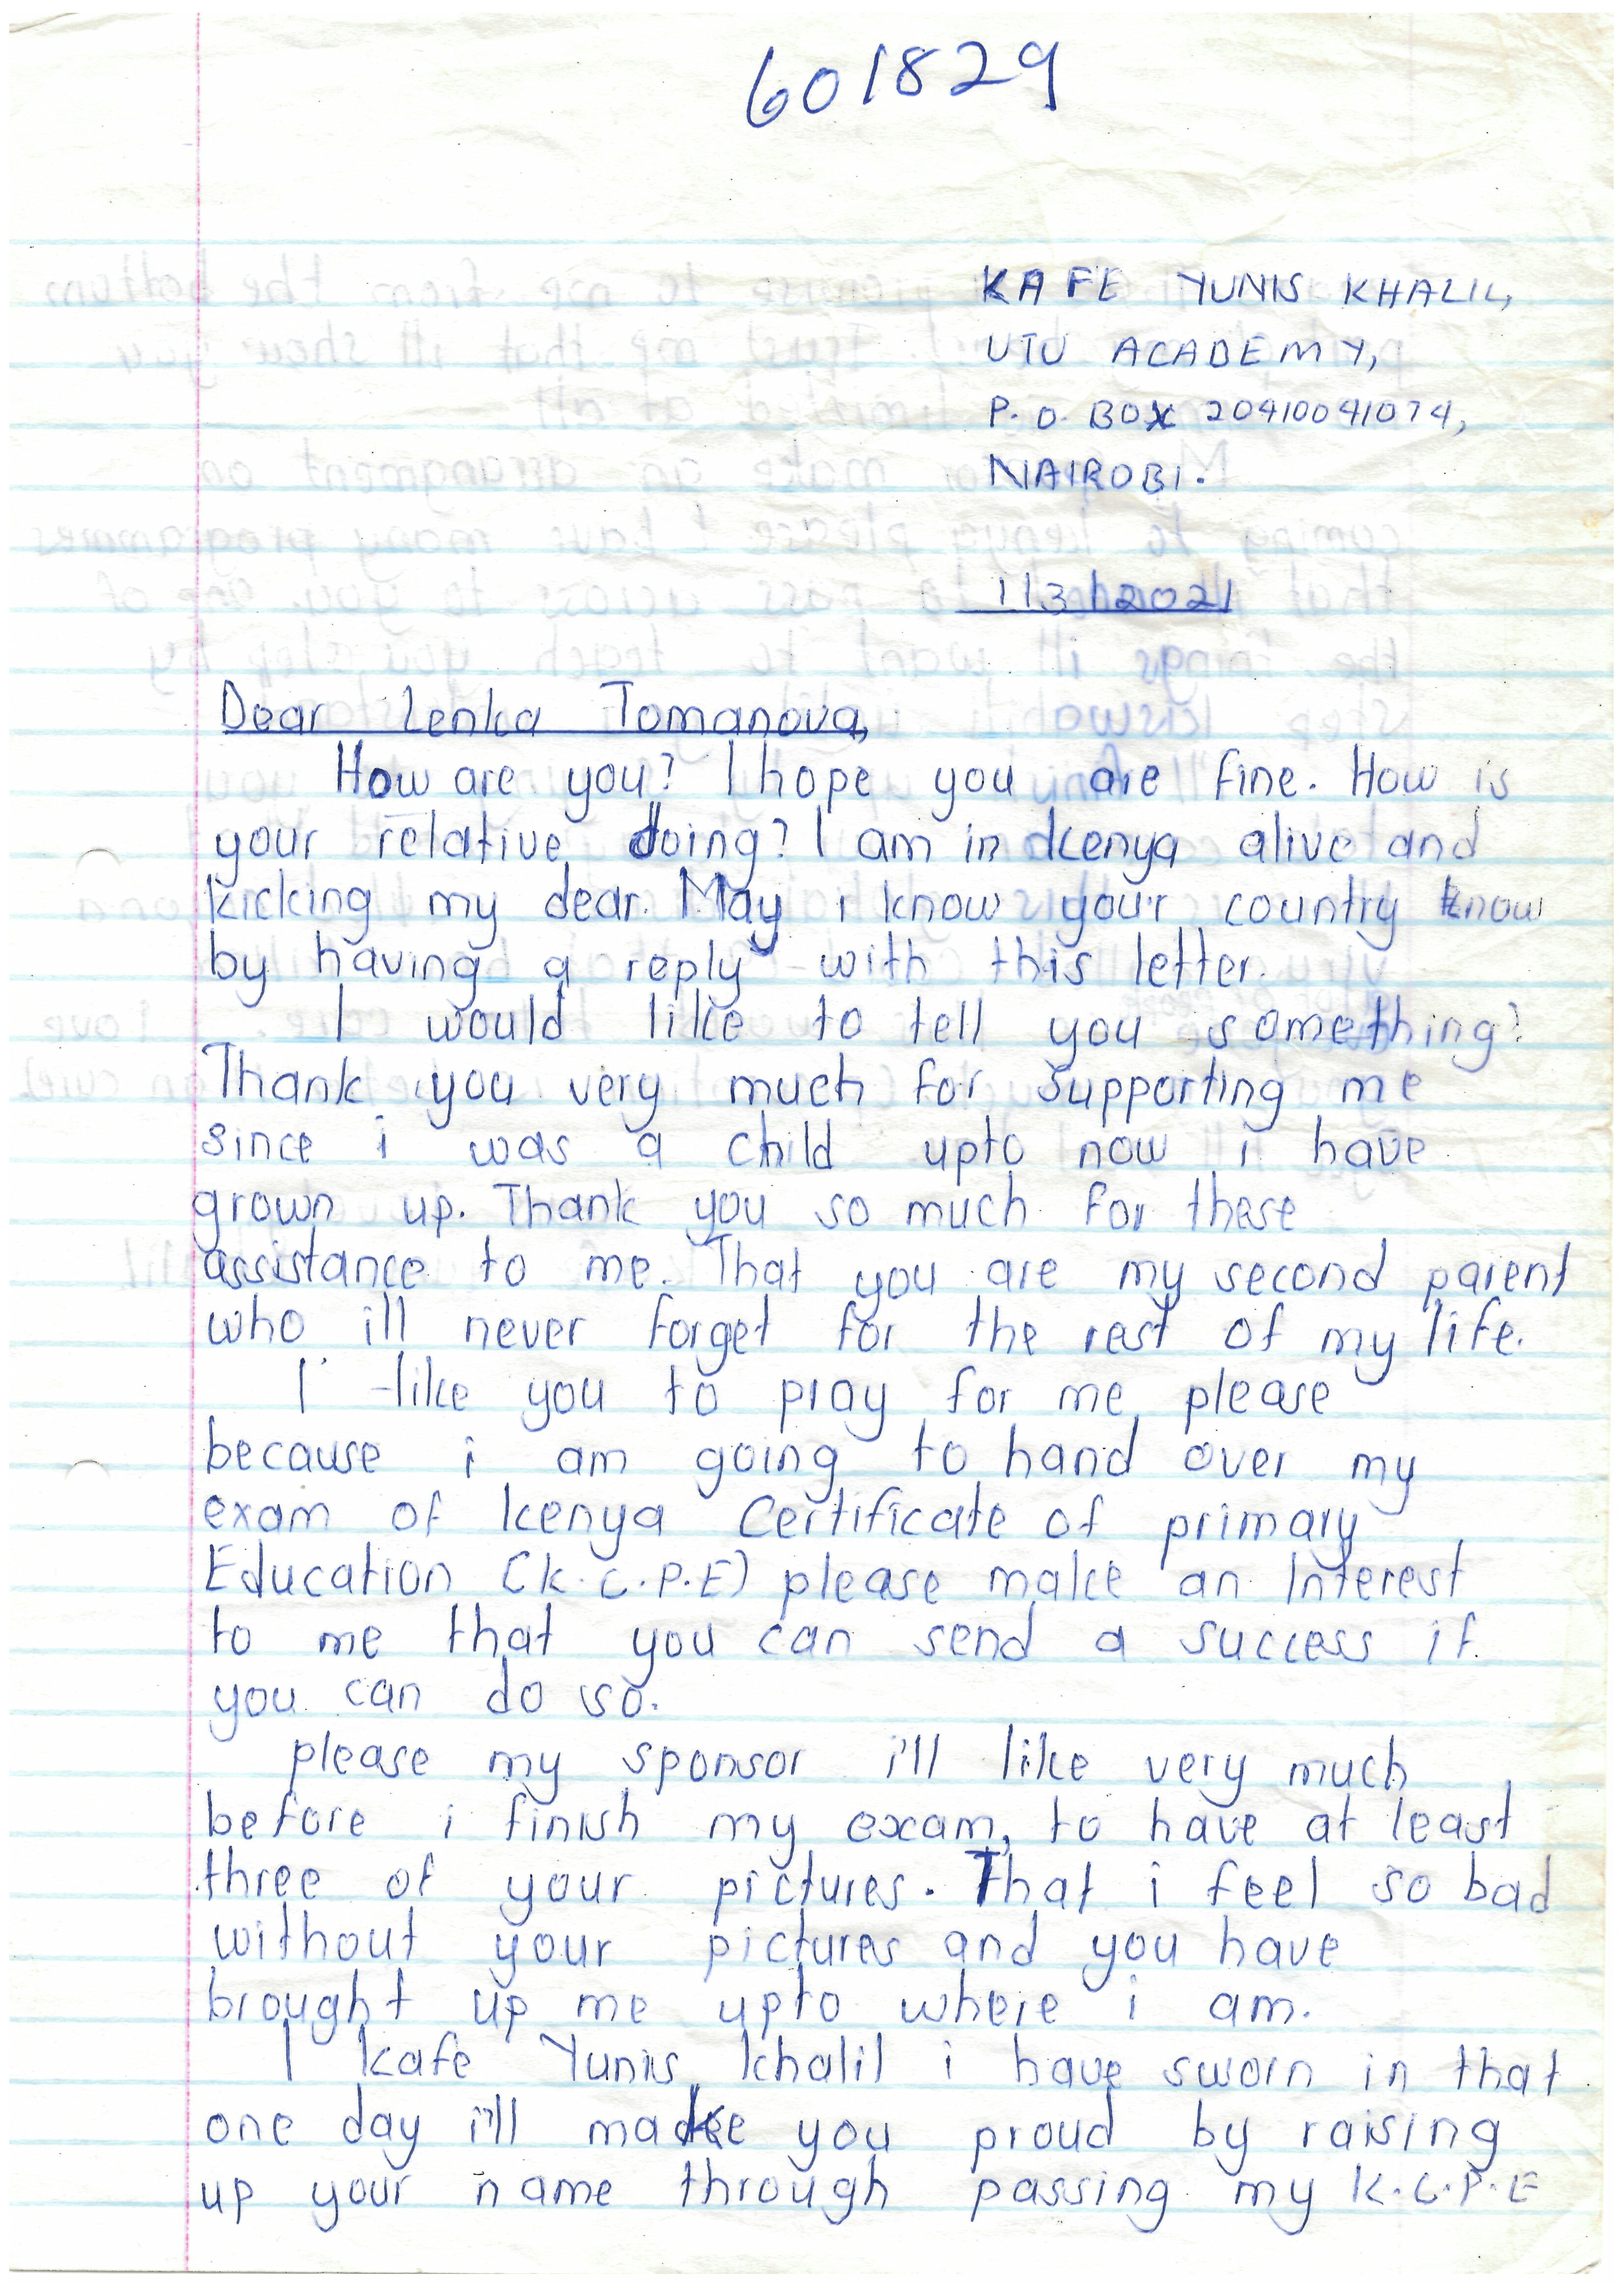 601829
KAFE YUNIS KHALIL,
UTU ACADEMY,
P. O. BOX 20410041074,
NAIROBI.
1/3/2021
Dear Lenka Tomanova,
How are you? I hope you are fine. How is
your relative doing? I am in Kenya alive and
kicking my dear. May i know your country know
by having a reply with this letter.
I would like to tell you something?
Thank you very much for supporting me
since i was a child upto now i have
grown up. Thank you so much for these
assistance to me. That you are my second parent
who ill never forget for the rest of my life.
I like you to pray for me please
because i am going to hand over my
exam of Kenya Certificate of primary
Education (K.C.P.E) please make an Interest
to me that you can send a success if
you can do so.
please my sponsor i'll like very much
before i finish my exam, to have at least
three of your pictures. That i feel so bad
without your pictures and you have
brought up me upto where i am.
I Kafe Yunis Khalil i have sworn in that
one day i'll make you proud by raising
up your name through passing my K.C.P.E